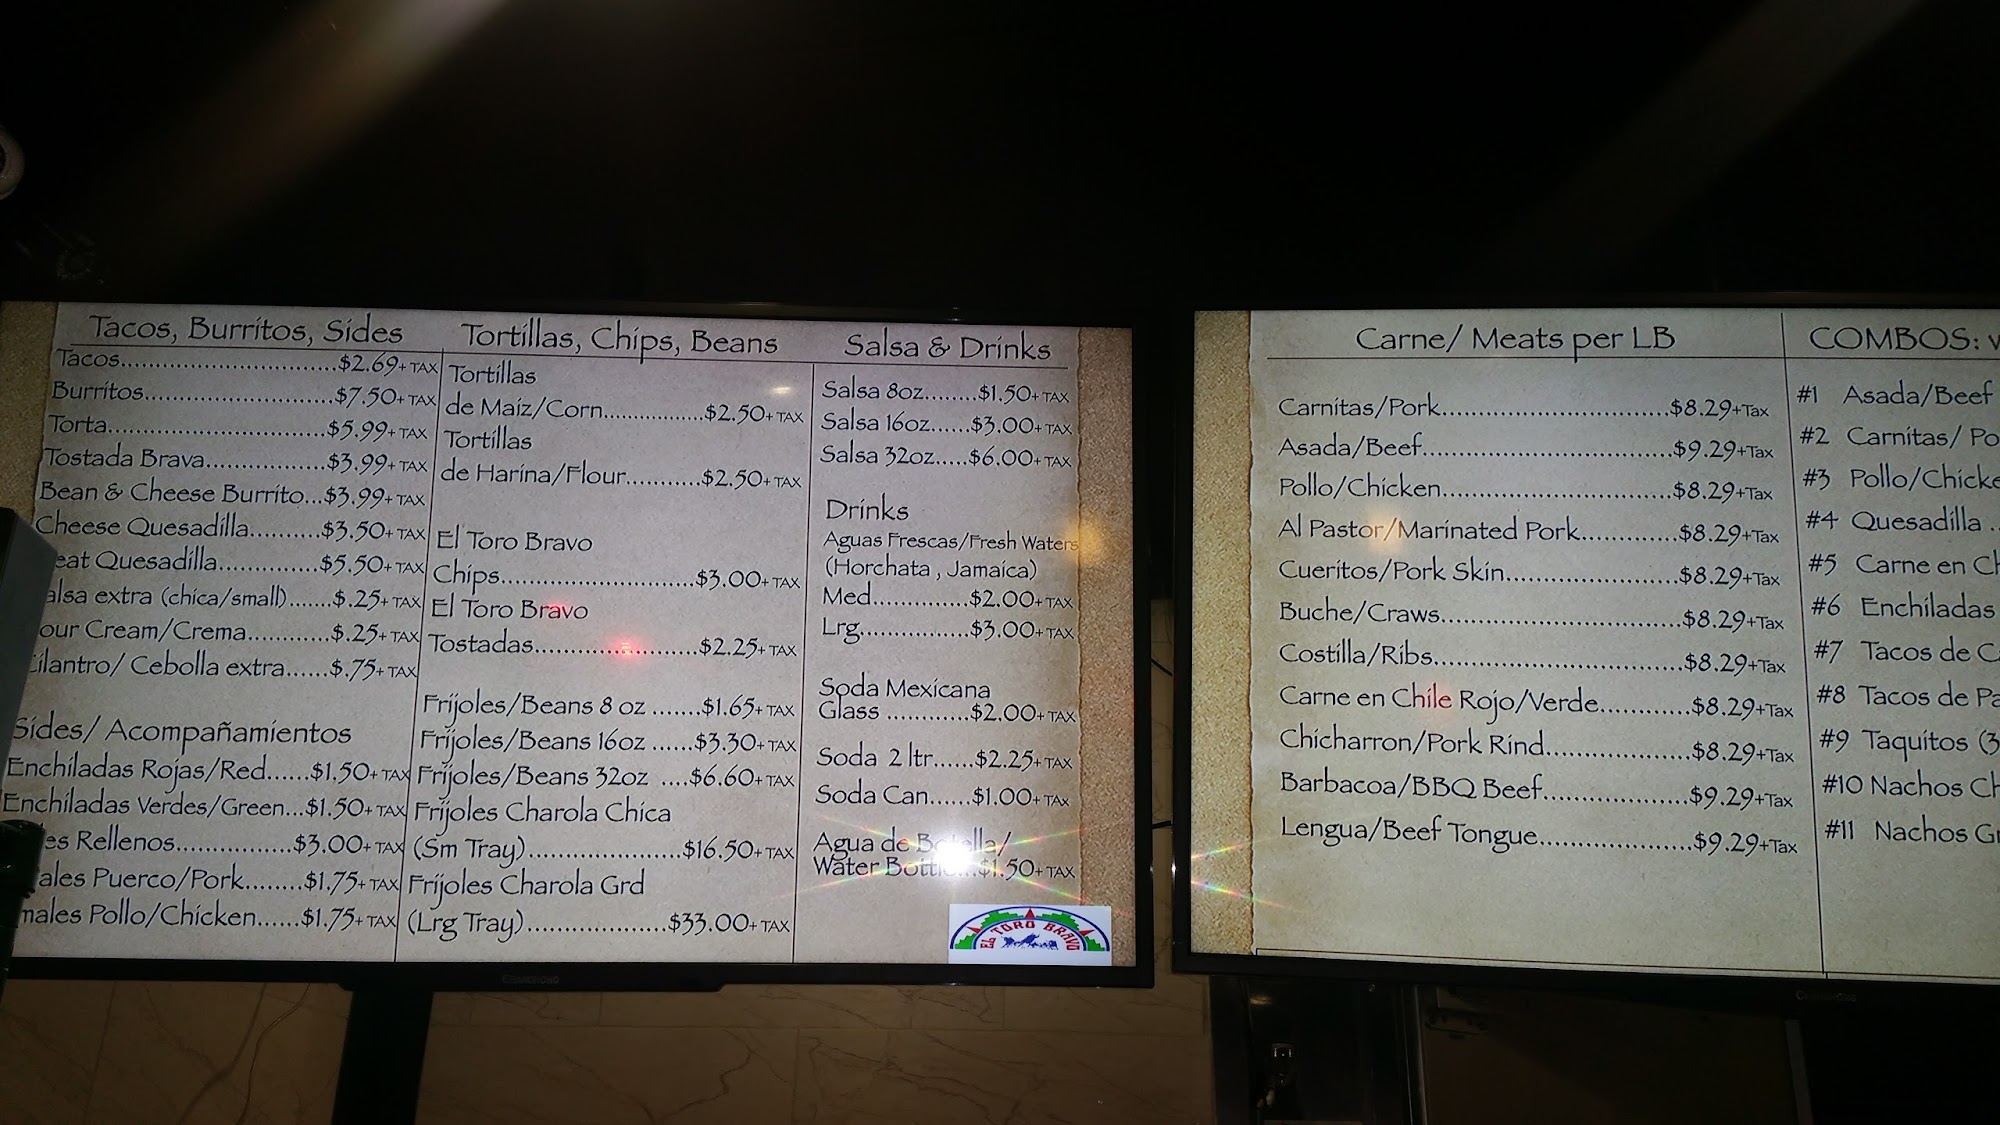 Tacos, Burritos, Sides
Tacos..............................$2.69+TAX
Burritos..........................$7.50+TAX
Torta..............................$5.99+TAX
Tostada Brava................$3.99+TAX
Bean & Cheese Burrito...$3.99+TAX
Cheese Quesadilla..........$3.50+TAX
eat Quesadilla..............$5.50+TAX
alsa extra (chica/small).......$.25+TAX
our Cream/Crema............$.25+TAX
Cilantro/ Cebolla extra......$.75+TAX
Sides/ Acompañamientos
Enchiladas Rojas/Red......$1.50+TAX
Enchiladas Verdes/Green...$1.50+TAX
es Rellenos................$3.00+TAX
ales Puerco/Pork........$1.75+TAX
males Pollo/Chicken......$1.75+TAX
Tortillas, Chips, Beans
Tortillas
de Maiz/Corn...............$2.50+TAX
Tortillas
de Harina/Flour...........$2.50+TAX
El Toro Bravo
Chips............................$3.00+TAX
El Toro Bravo
Tostadas.......................$2.25+TAX
Frijoles/Beans 8 oz .......$1.65+TAX
Frijoles/Beans 16oz ......$3.30+TAX
Frijoles/Beans 32oz ....$6.60+TAX
Frijoles Charola Chica
(Sm Tray)......................$16.50+TAX
Frijoles Charola Grd
(Lrg Tray)....................$33.00+TAX
Salsa & Drinks
Salsa 8oz........$1.50+TAX
Salsa 16oz......$3.00+TAX
Salsa 32oz.....$6.00+TAX
Drinks
Aguas Frescas/Fresh Waters
(Horchata , Jamaica)
Med..............$2.00+TAX
Lrg................$3.00+TAX
Soda Mexicana
Glass ............$2.00+TAX
Soda 2 ltr......$2.25+TAX
Soda Can......$1.00+TAX
Agua de Botella/
Water Bottle...$1.50+TAX
EL TORO BRAVO
Carne/ Meats per LB
Carnitas/Pork.................................$8.29+Tax
Asada/Beef....................................$9.29+Tax
Pollo/Chicken.................................$8.29+Tax
Al Pastor/Marinated Pork..............$8.29+Tax
Cueritos/Pork Skin.........................$8.29+Tax
Buche/Craws...................................$8.29+Tax
Costilla/Ribs...................................$8.29+Tax
Carne en Chile Rojo/Verde............$8.29+Tax
Chicharron/Pork Rind....................$8.29+Tax
Barbacoa/BBQ Beef....................$9.29+Tax
Lengua/Beef Tongue.....................$9.29+Tax
COMBOS:
#1 Asada/Beef
#2 Carnitas/ Po
#3 Pollo/Chicke
#4 Quesadilla ..
#5 Carne en Ch
#6 Enchiladas
#7 Tacos de Ca
#8 Tacos de Pa
#9 Taquitos (3
#10 Nachos Ch
#11 Nachos Gr